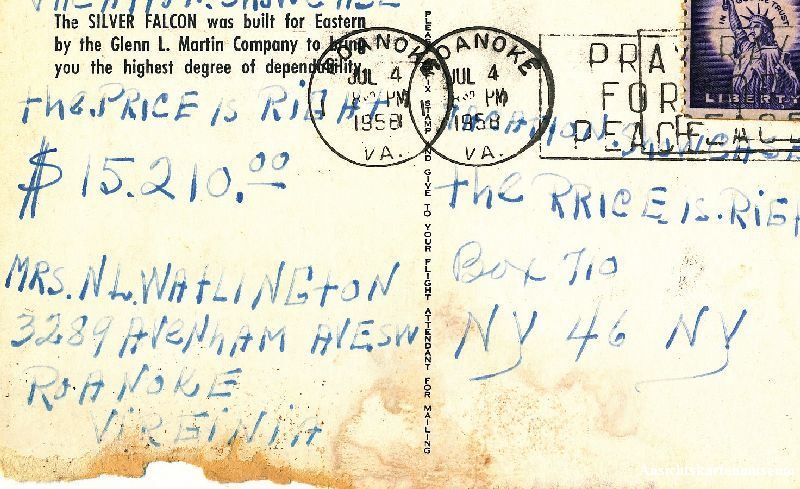 VACATION. SHOWCASE
The SILVER FALCON was built for Eastern
by the Glenn L. Martin Company to bring
you the highest degree of dependability.
the. PRICE is RigHt
$ 15.210.00
MRS. N.L. WATLINGTON
3289 AVENHAM AVE SW
ROANOKE
VIRGINIA
PLEASE AFFIX STAMP AND GIVE TO YOUR FLIGHT ATTENDANT FOR MAILING
ROANOKE
JUL 4
PM
1958
VA.
ROANOKE
JUL 4
PM
1958
VA.
PRAY
FOR
PEACE
IN GOD WE TRUST
LIBERTY
VACATION. SHOWCASE
the PRICE is. RigH
Box 710
NY 46 NY
Ansichtskartenmuseum